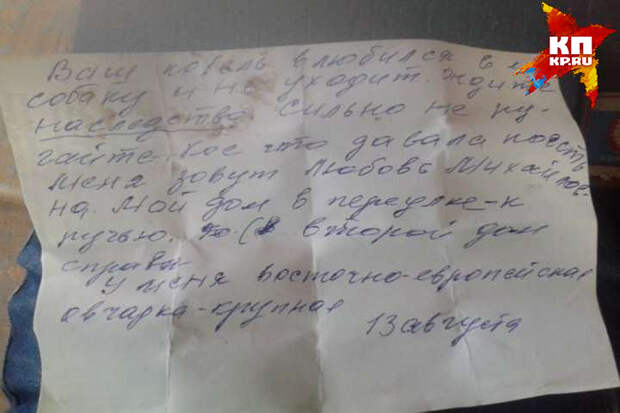 КП
KP.RU
Ваш кобель влюбился в м
собаку и не уходит. Ждите
наследства. Сильно не ру-
гайте. Кое что давала поесть
меня зовут Любовь Михайлов-
на. Мой дом в переулке-к
ручью. второй дом
справа
У меня восточно-европейская
овчарка-крупная
13 августа